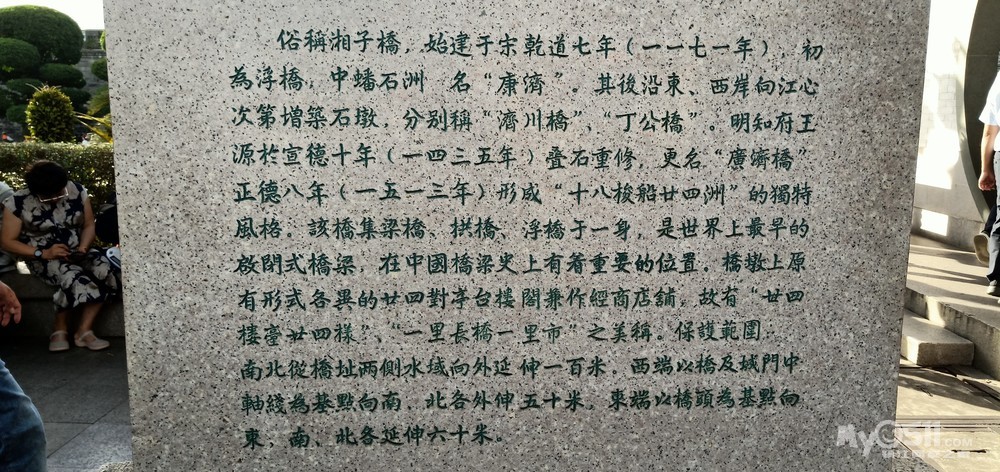 俗稱湘子橋，始建于宋乾道七年（一一七一年） 初
為浮橋，中蟠石洲 名“康濟”。其後沿東、西岸向江心
次第增築石墩，分別稱“濟川橋”、“丁公橋”。明知府王
源於宣德十年（一四三五年）叠石重修，更名“廣濟橋”
正德八年（一五一三年）形成“十八梭船廿四洲”的獨特
風格。該橋集梁橋、拱橋、浮橋于一身，是世界上最早的
啟閉式橋梁，在中國橋梁史上有着重要的位置。橋墩上原
有形式各異的廿四對亭台樓閣兼作經商店舖，故有“廿四
樓臺廿四樣”、“一里長橋一里市”之美稱。保護範圍：
南北從橋址兩側水域向外延伸一百米，西端以橋及城門中
軸綫為基點向南、北各外伸五十米，東端以橋頭為基點向
東，南、北各延伸六十米。
MyC511.COM